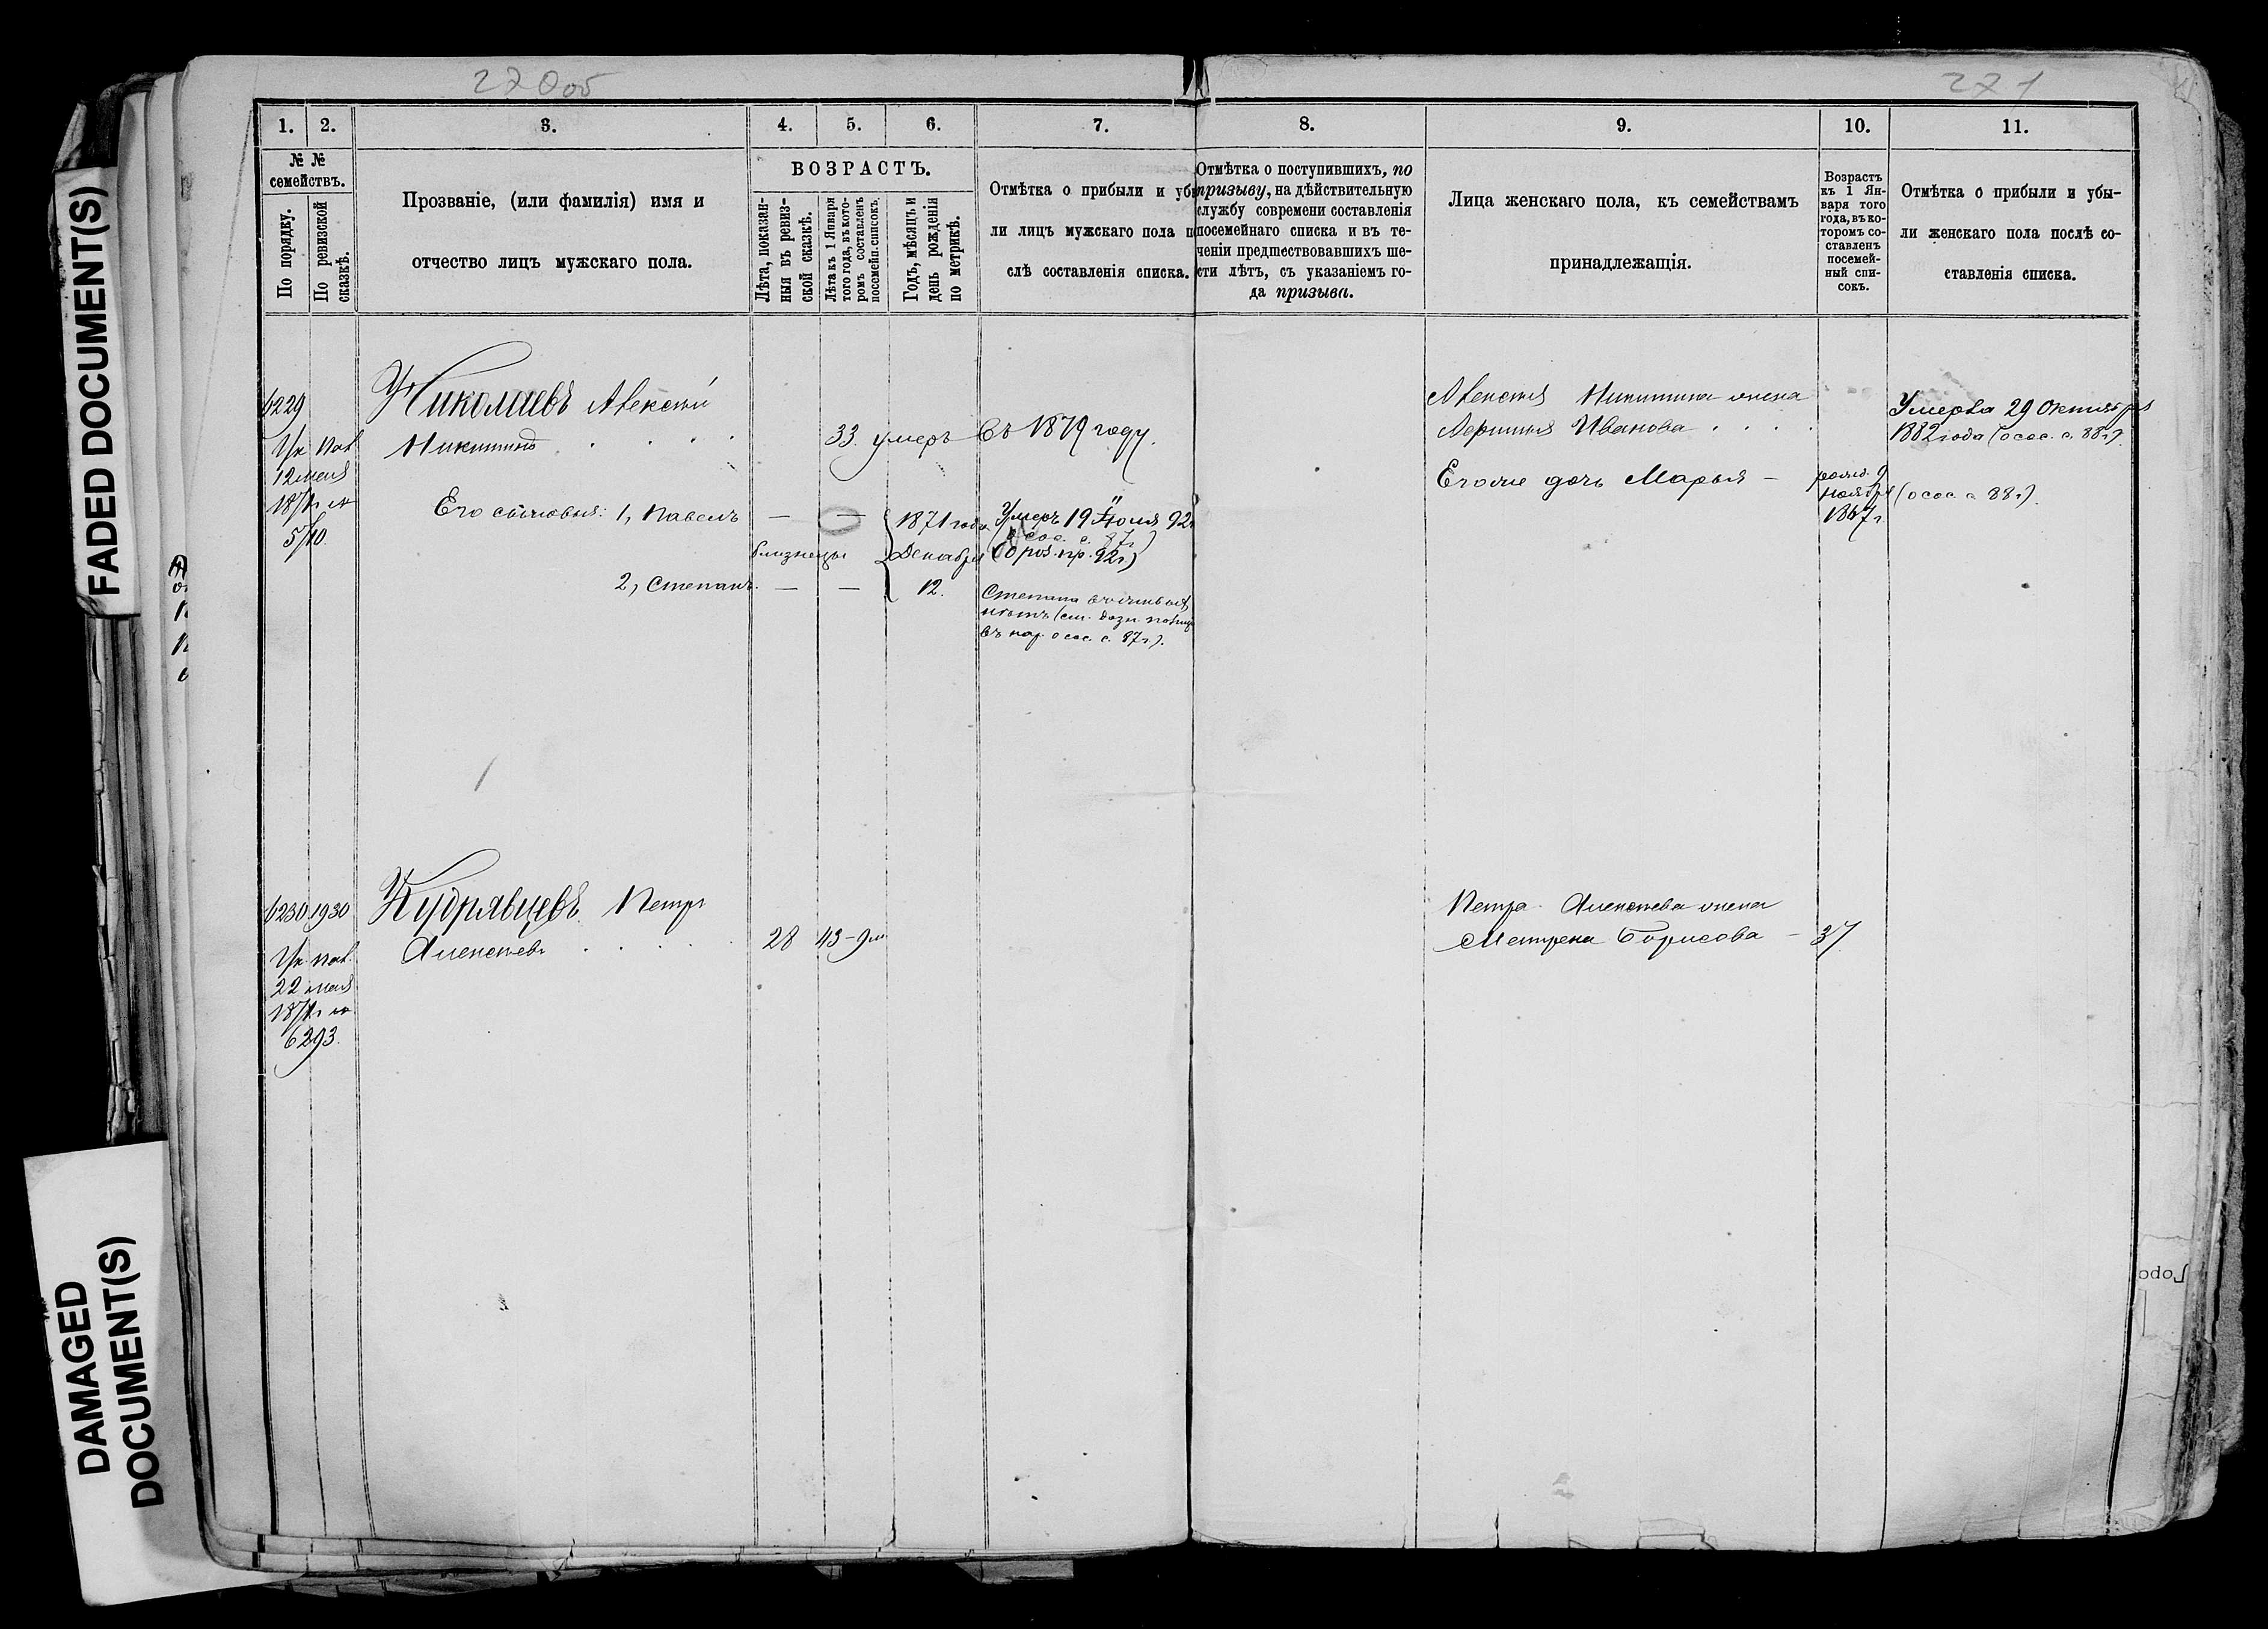 FADED DOCUMENT(S)
DAMAGED
DOCUMENT(S)
270об
271
1. 2. 3. 4. 5. 6. 7. 8. 9. 10. 11.
№ №
семействъ.
По порядку.
По ревизской
сказкѣ.
Прозваніе, (или фамилія) имя и
отчество лицъ мужскаго пола.
ВОЗРАСТЪ.
Лѣта, показан-
ныя въ ревиз-
ской сказкѣ.
Лѣта къ 1 Января
того года, въ кото-
ромъ составленъ
посемейн. списокъ.
Годъ, мѣсяцъ и
день рожденія
по метрикѣ.
Отмѣтка о прибыли и убы
ли лицъ мужскаго пола п
слѣ составленія списка.
Отмѣтка о поступившихъ, по
призыву, на дѣйствительную
службу современи составленія
посемейнаго списка и въ те-
ченіи предшествовавшихъ ше-
сти лѣтъ, съ указаніемъ го-
да призыва.
Лица женскаго пола, къ семействамъ
принадлежащія.
Возрастъ
къ 1 Ян-
варя того
года, въ ко-
торомъ со-
ставленъ
посемей-
ный спи-
сокъ.
Отмѣтка о прибыли и убы-
ли женскаго пола послѣ со-
ставленія списка.
6229
Ук. пал.
12 мая
187
5/10.
Николаевъ Алексѣй
Никитинъ
33. умеръ въ 1879 году.
Его сыновья: 1, Павелъ — —
близнецы
2, Степанъ. — —
1871 года
Декабря
12.
Умеръ 19 Іюля 92
с. 87г)
пр. 92г)
Степана
въ с. 87г).
Алексѣя Никитина жена
Ивановa
Его же дочь Марья —
рожд. 9
ноября
1867г.
Умерла 29 Октября
1882 года (о сос. с. 88г).
(о сос. с 88г).
6230 1930
Ук. пал.
22 мая
187
6293.
Кудрявцевъ Петръ
Алексѣевъ
28 43-9м
Петра Алексѣева жена
Матрена Борисова — 37
Горо